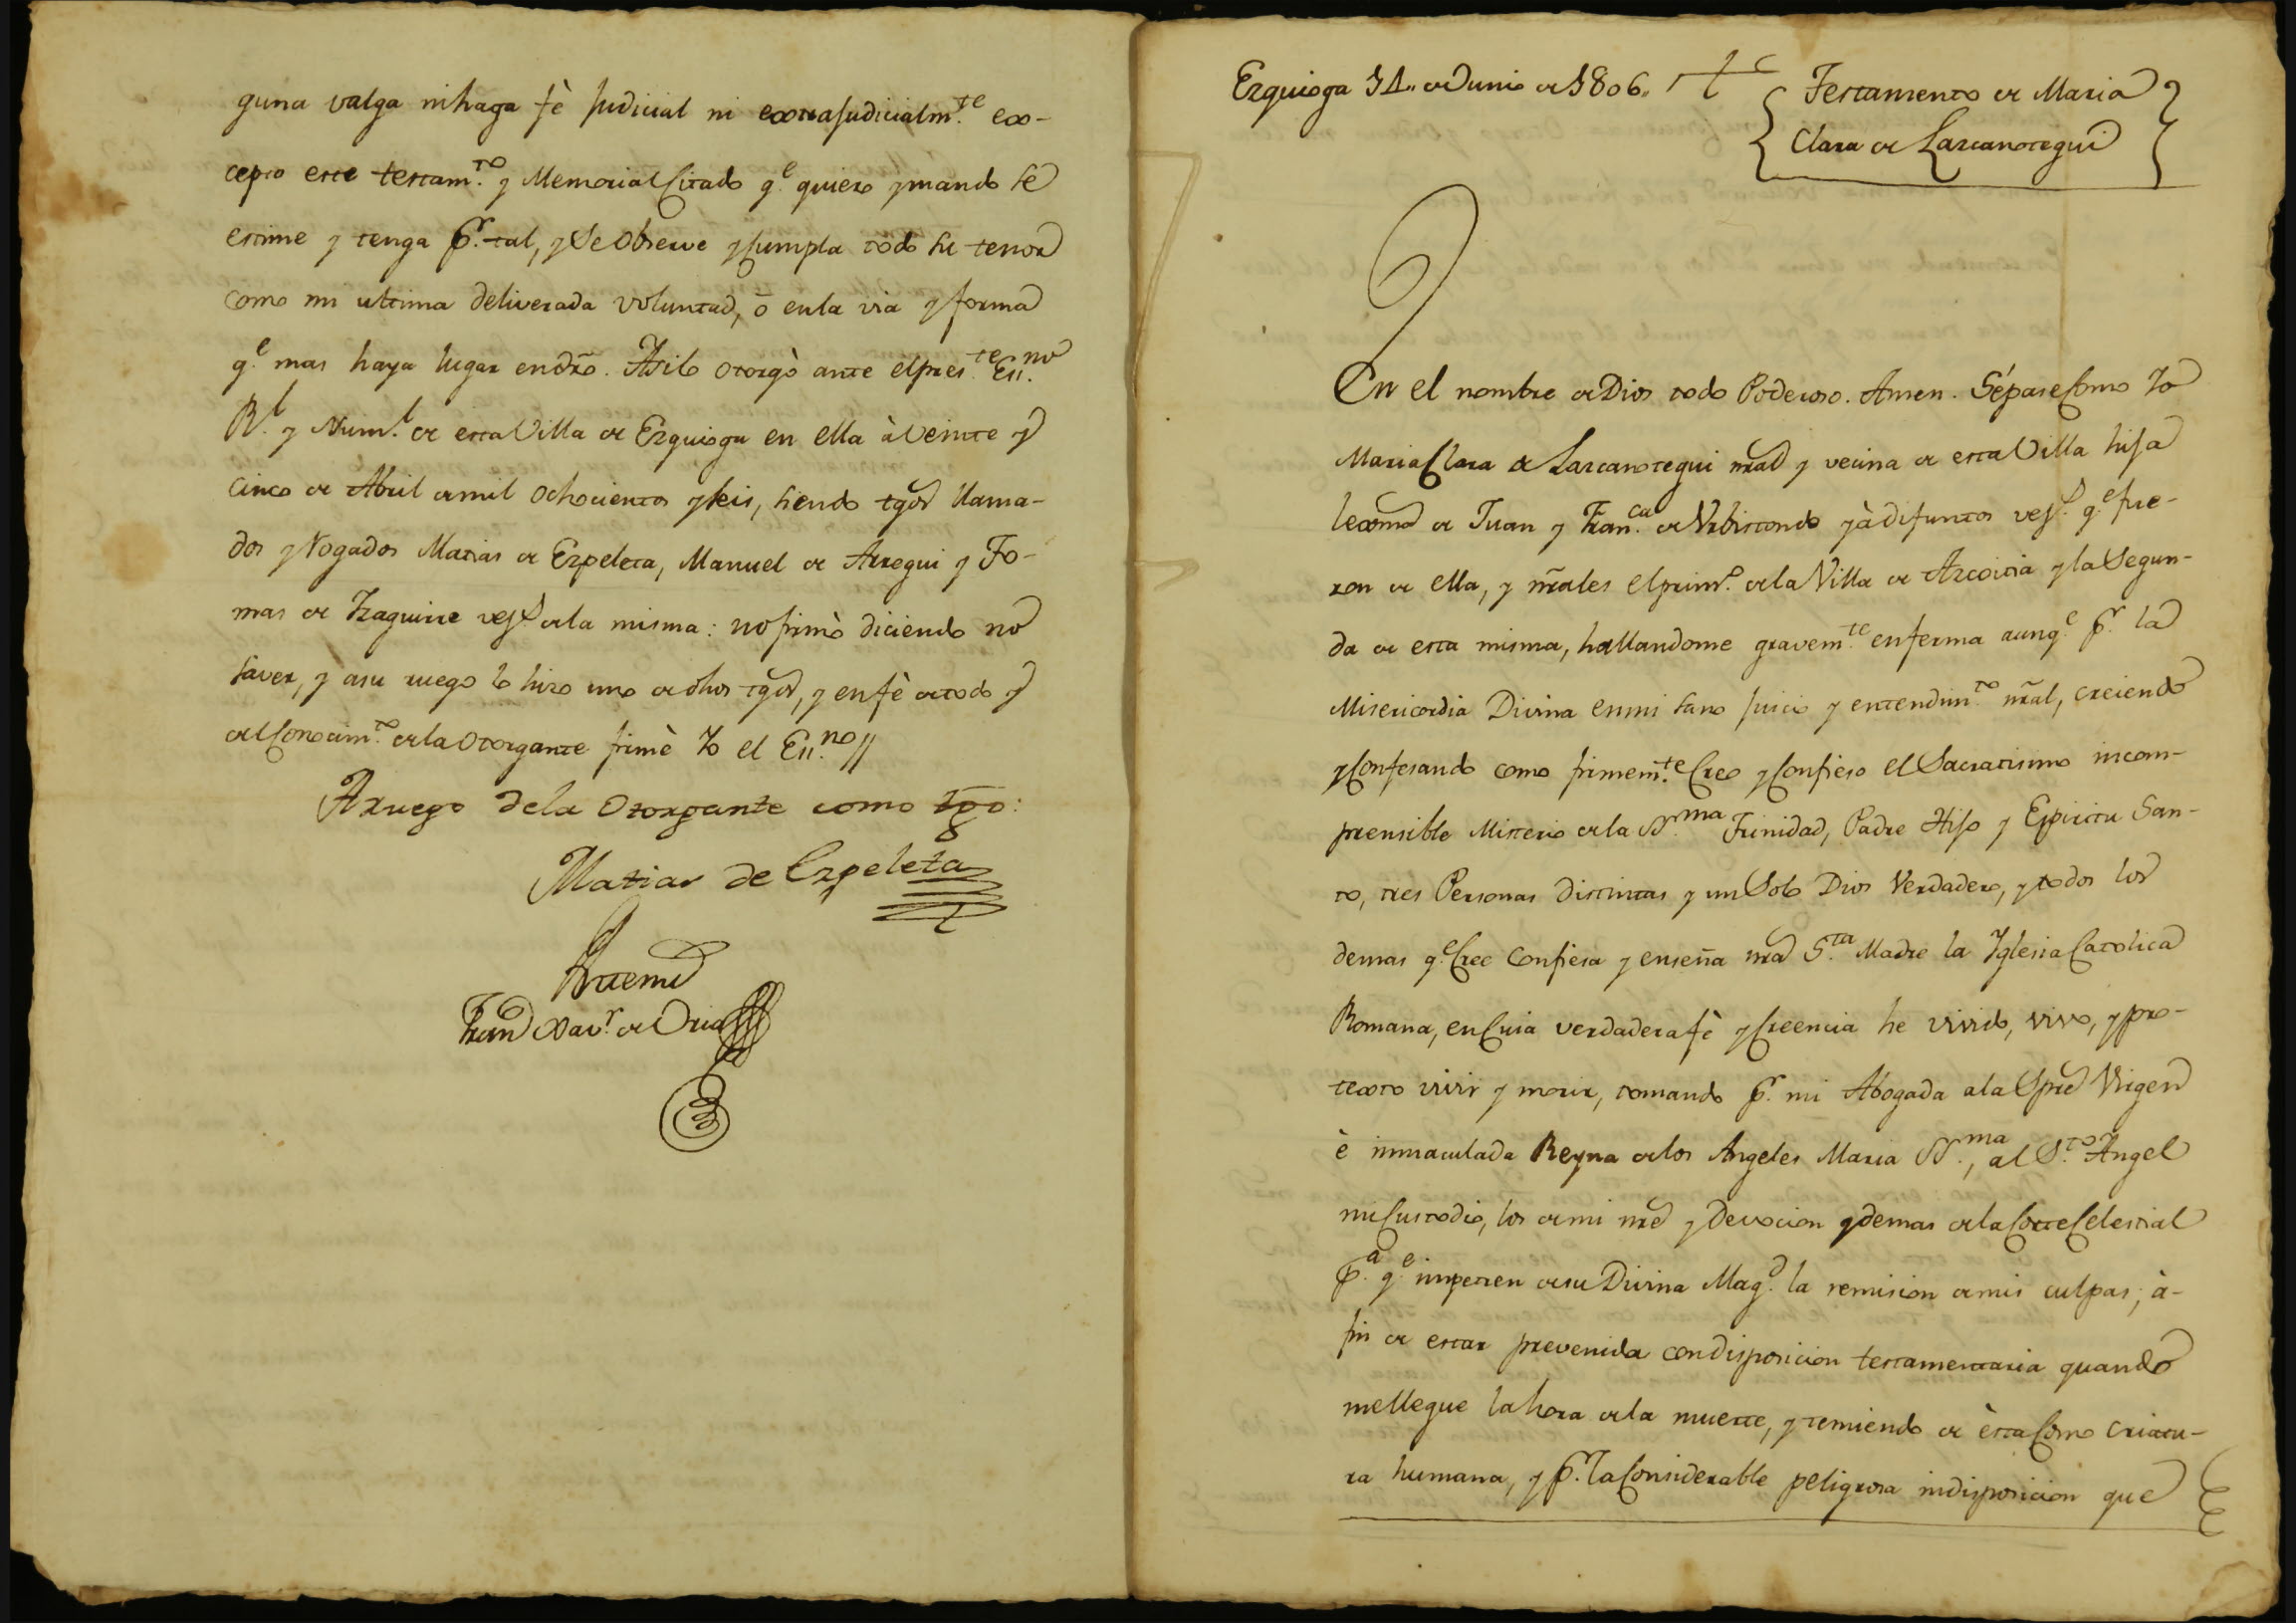 guna valga ni haga fè judicial ni extrajudicialm.te ex-
cepto este testam.to y Memorial Citado q.e quiero y mando se
estime y tenga p.r tal, y se observe y Cumpla todo su tenor
como mi ultima deliverada voluntad, ò en la via y forma
q.e mas haya lugar en dro. Asi lo otorgò ante el pres.te Ess.no
R.l y Num.l de esta Villa de Ezquioga en ella à Veinte y
cinco de Abril de mil ochocientos y seis, siendo tgos llama-
dos y Rogados Matias de Ezpeleta, Manuel de Arregui y To-
mas de Yzaguirre vez.s de la misma: no firmò diciendo no
saver, y a su ruego lo hizo uno de dhos tgos, y en fè de todo y
del Conocim.to de la Otorgante firmè Yo el Ess.no //
A ruego de la Otorgante como tgo:
Matias de Ezpeleta
Ante mi
Fran.co Xav.r de Oria
Ezquioga 11,, de Junio de 1806,,
Testamento de Maria
Clara de Lazcanotegui
En el nombre de Dios todo Poderoso. Amen. Sépase Como Yo
Maria Clara de Lazcanotegui nral y vecina de esta Villa hija
lexma de Juan y Fran.ca de Urbistondo yà difuntos vez.s q.e fue-
ron de ella, y nrales el prim.o de la Villa de Azcoitia y la Segun-
da de esta misma, hallandome gravem.te enferma aunq.e p.r la
Misericordia Divina en mi sano juicio y entendim.to nral, creiendo
y Confesando como firmem.te Creo y Confieso el Sacratisimo incom-
prensible Misterio de la SS.ma Trinidad, Padre Hijo y Espiritu San-
to, tres Personas distintas y un Solo Dios Verdadero, y todos los
demas q.e Cree Confiesa y enseña nra S.ta Madre la Yglesia Catolica
Romana, en Cuia verdadera fè y Creencia he vivido, vivo, y pro-
texto vivir y morir, tomando p.r mi Abogada a la Spre Virgen
è inmaculada Reyna de los Angeles Maria SS.ma, al S.to Angel
mi Custodio, los de mi nre y Devocion y demas de la Corte Celestial
p.a q.e impetren de su Divina Mag.d la remision de mis culpas; à-
fin de estar prevenida con disposicion testamentaria quando
me llegue la hora de la muerte, y temiendo de èsta Como criatu-
ra humana, y p.r la Considerable peligrosa indisposicion que